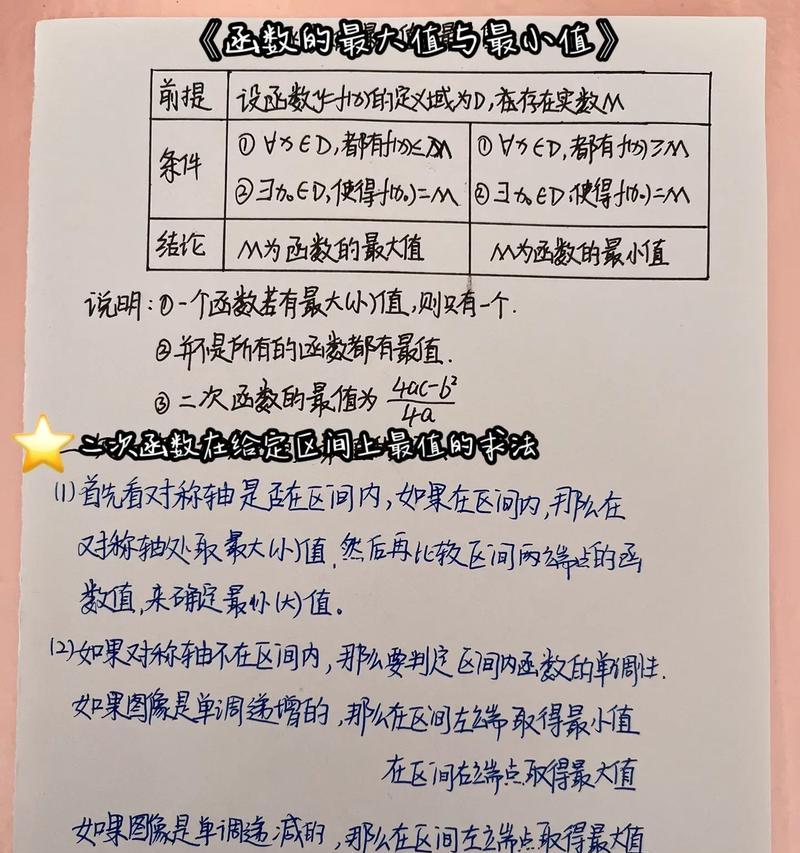 《函数的最大值与最小值》
前提 设函数y=f(x)的定义域为D,若存在实数M
条件 ①∀x∈D,都有f(x)≤M ①∀x∈D,都有f(x)≥M
②∃x₀∈D,使得f(x₀)=M ②∃x₀∈D,使得f(x₀)=M
结论 M为函数的最大值 M为函数的最小值
说明:①一个函数若有最大(小)值,则只有一个.
②并不是所有的函数都有最值.
③二次函数的最值为 (4ac-b²)/4a
二次函数在给定区间上最值的求法
(1)首先看对称轴是否在区间内,如果在区间内,那么在
对称轴处取最大(小)值,然后再比较区间两端点的函
数值,来确定最小(大)值。
(2)如果对称轴不在区间内,那么要判定区间内函数的单调性.
如果图像是单调递增的,那么在区间左端取得最小值
在区间右端点取得最大值
如果图像是单调递减的,那么在区间左端点取得最大值